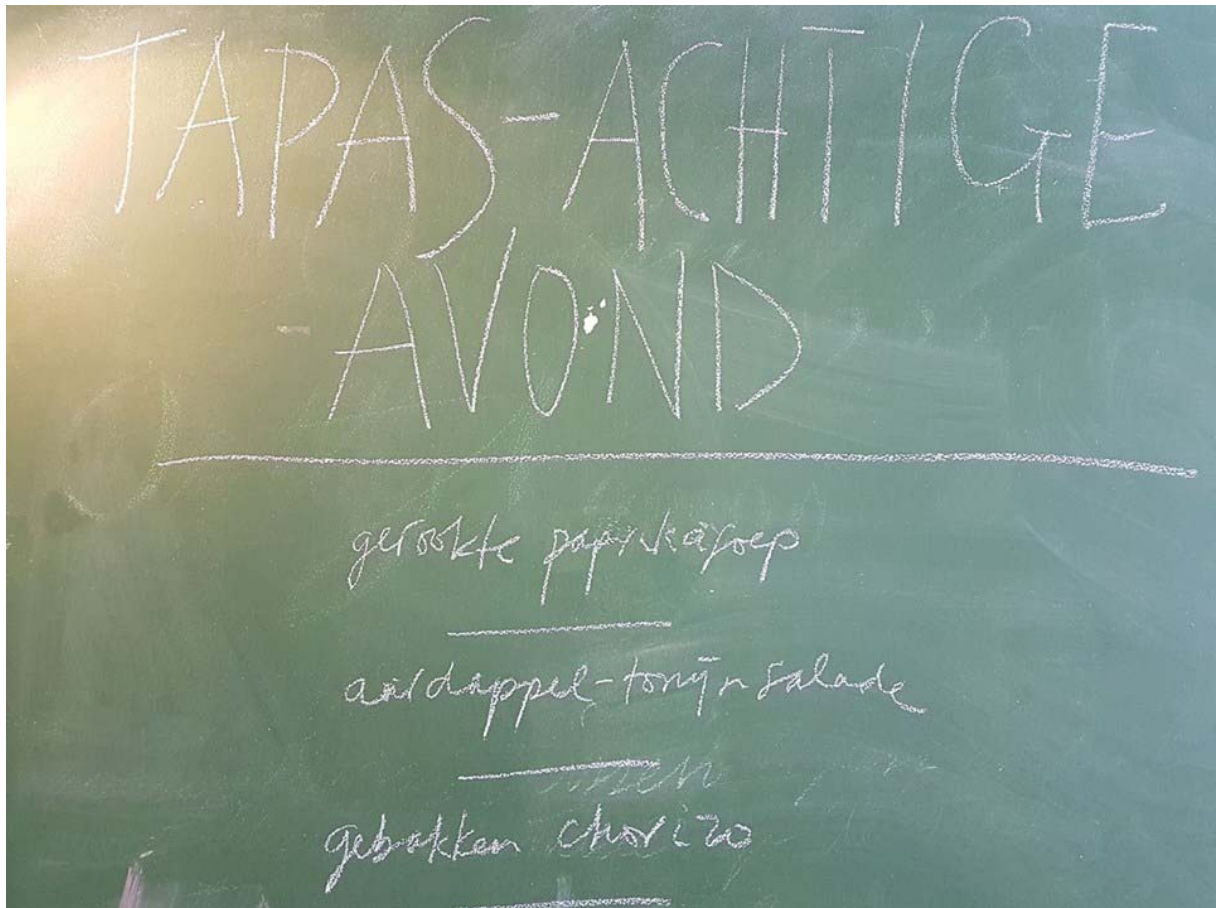 TAPAS-ACHTIGE
-AVOND
gerookte paprikasoep
aardappel-tonijnsalade
gebakken chorizo